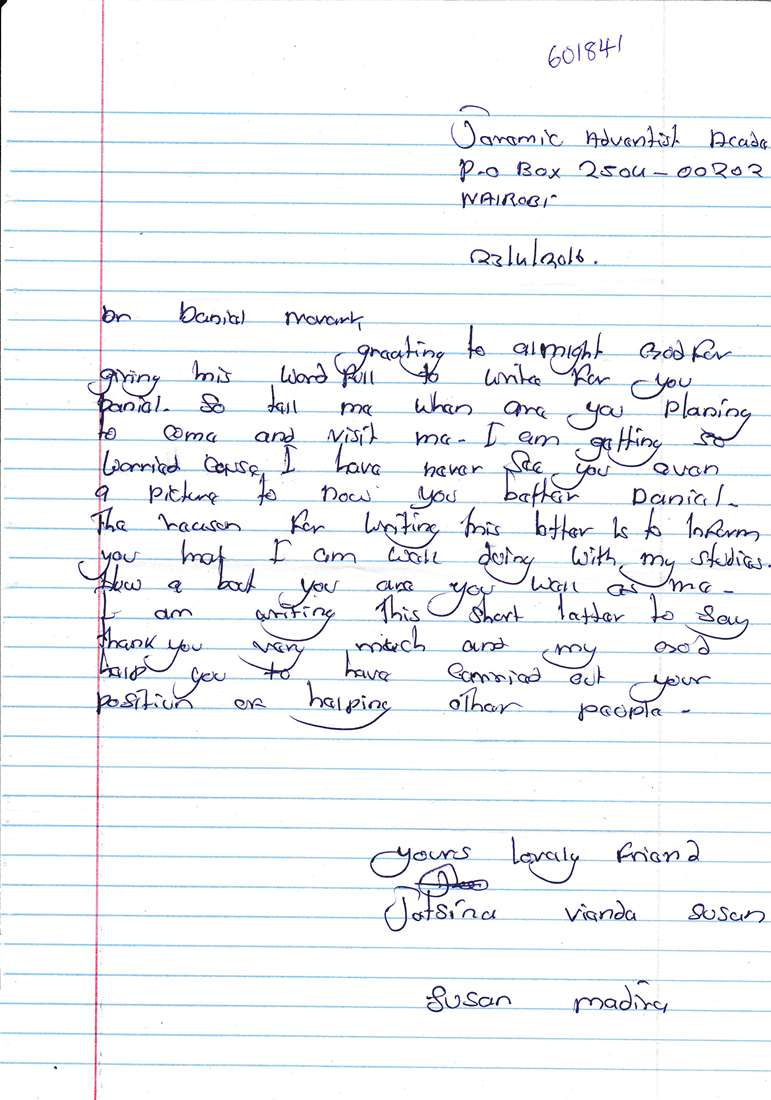 601841
Joramic Adventist Acade
P.o Box 2504-00202
NAIROBI
23/4/2016.
Danial
greeting to almight God for
giving this word full to write for you
Danial. So tell me when are you planing
to come and visit me. I am getting so
worried cause I have never see you even
a picture to now you better Danial.
The reason for writing this letter is to Inform
you that I am well doing with my studies.
How a bout you are you well as me.
I am writing This short letter to Say
thank you very much and my God
help you to have carried out your
position of helping other people.
Yours lovely friend
vianda Susan
Susan